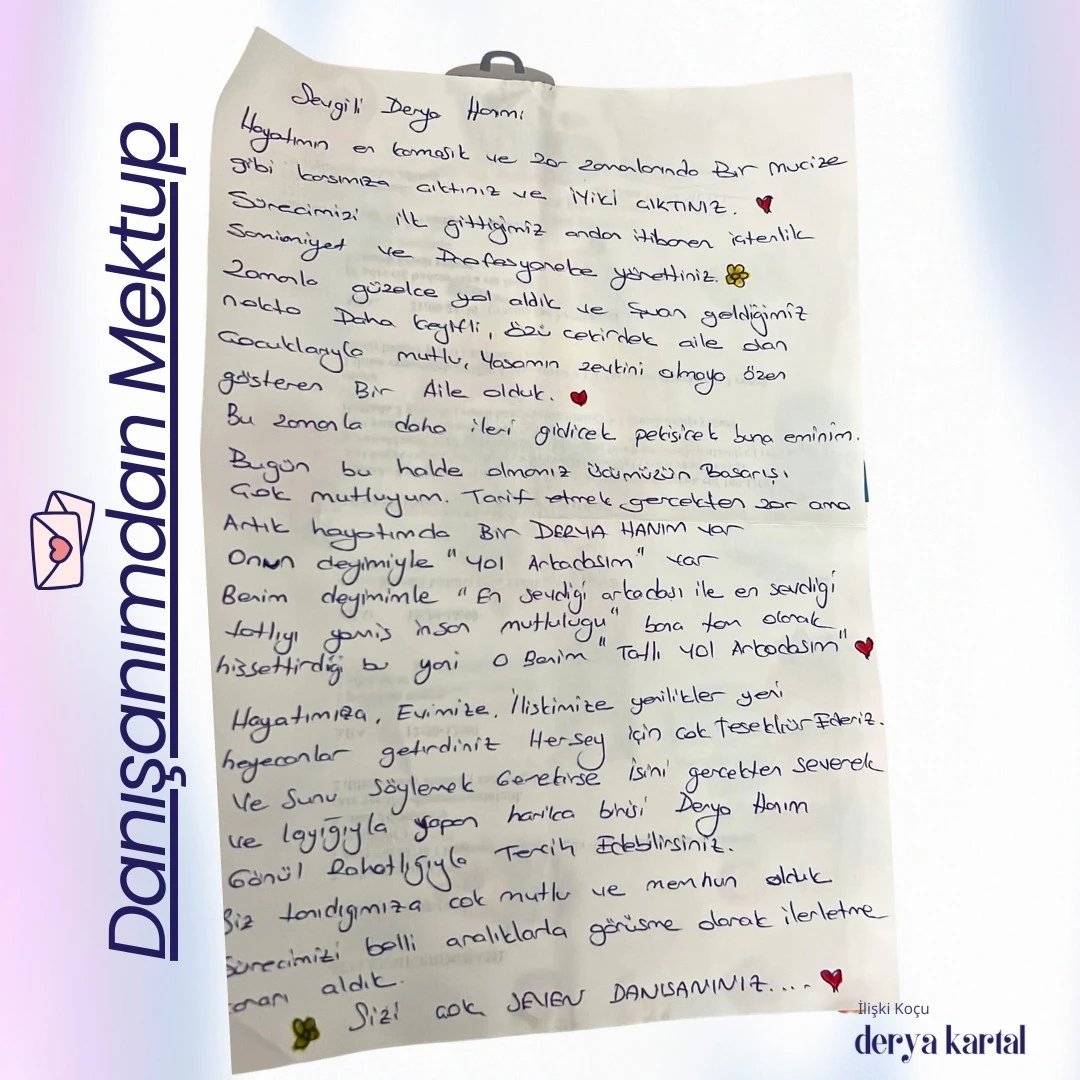 Danışanımdan Mektup
Sevgili Derya Hanım
Hayatımın en karmaşık ve zor zamanlarında Bir mucize
gibi karsımıza cıktınız ve İYİKİ ÇIKTINIZ.
Sürecimizi ilk gittiğimiz andan itibaren içtenlik
Samimiyet ve Profesyonelce yönettiniz.
Zamanla güzelce yol aldık ve Şuan geldiğimiz
nokta Daha keyifli, özü cekirdek aile olan
Cocuklarıyla mutlu, Yasamın zevkini almaya özen
gösteren Bir Aile olduk.
Bu zamanla daha ileri gidicek pekisicek buna eminim.
Bugün bu halde olmamız Ücümüzün Basarısı
Cok mutluyum. Tarif etmek gercekten zor ama
Artık hayatımda Bir DERYA HANIM var
Onun deyimiyle "Yol Arkadasım" var
Benim deyimimle "En sevdiği arkadası ile en sevdiği
tatlıyı yemis insan mutluluğu" bana tam olarak
hissettirdiği bu yani O Benim "Tatlı Yol Arkadasım"
Hayatımıza, Evimize, İliskimize yenilikler yeni
heyecanlar getirdiniz Hersey için cok Tesekkür Ederiz.
Ve Sunu söylemek Gerekirse İsini gercekten severek
ve layığıyla yapan harika birisi Derya Hanım
Gönül Rahatlığıyla Tercih Edebilirsiniz.
Biz tanıdığımıza cok mutlu ve memnun olduk
Sürecimizi belli aralıklarla görüsme olarak ilerletme
kararı aldık.
Sizi cok SEVEN DANISANINIZ....
İlişki Koçu
derya kartal